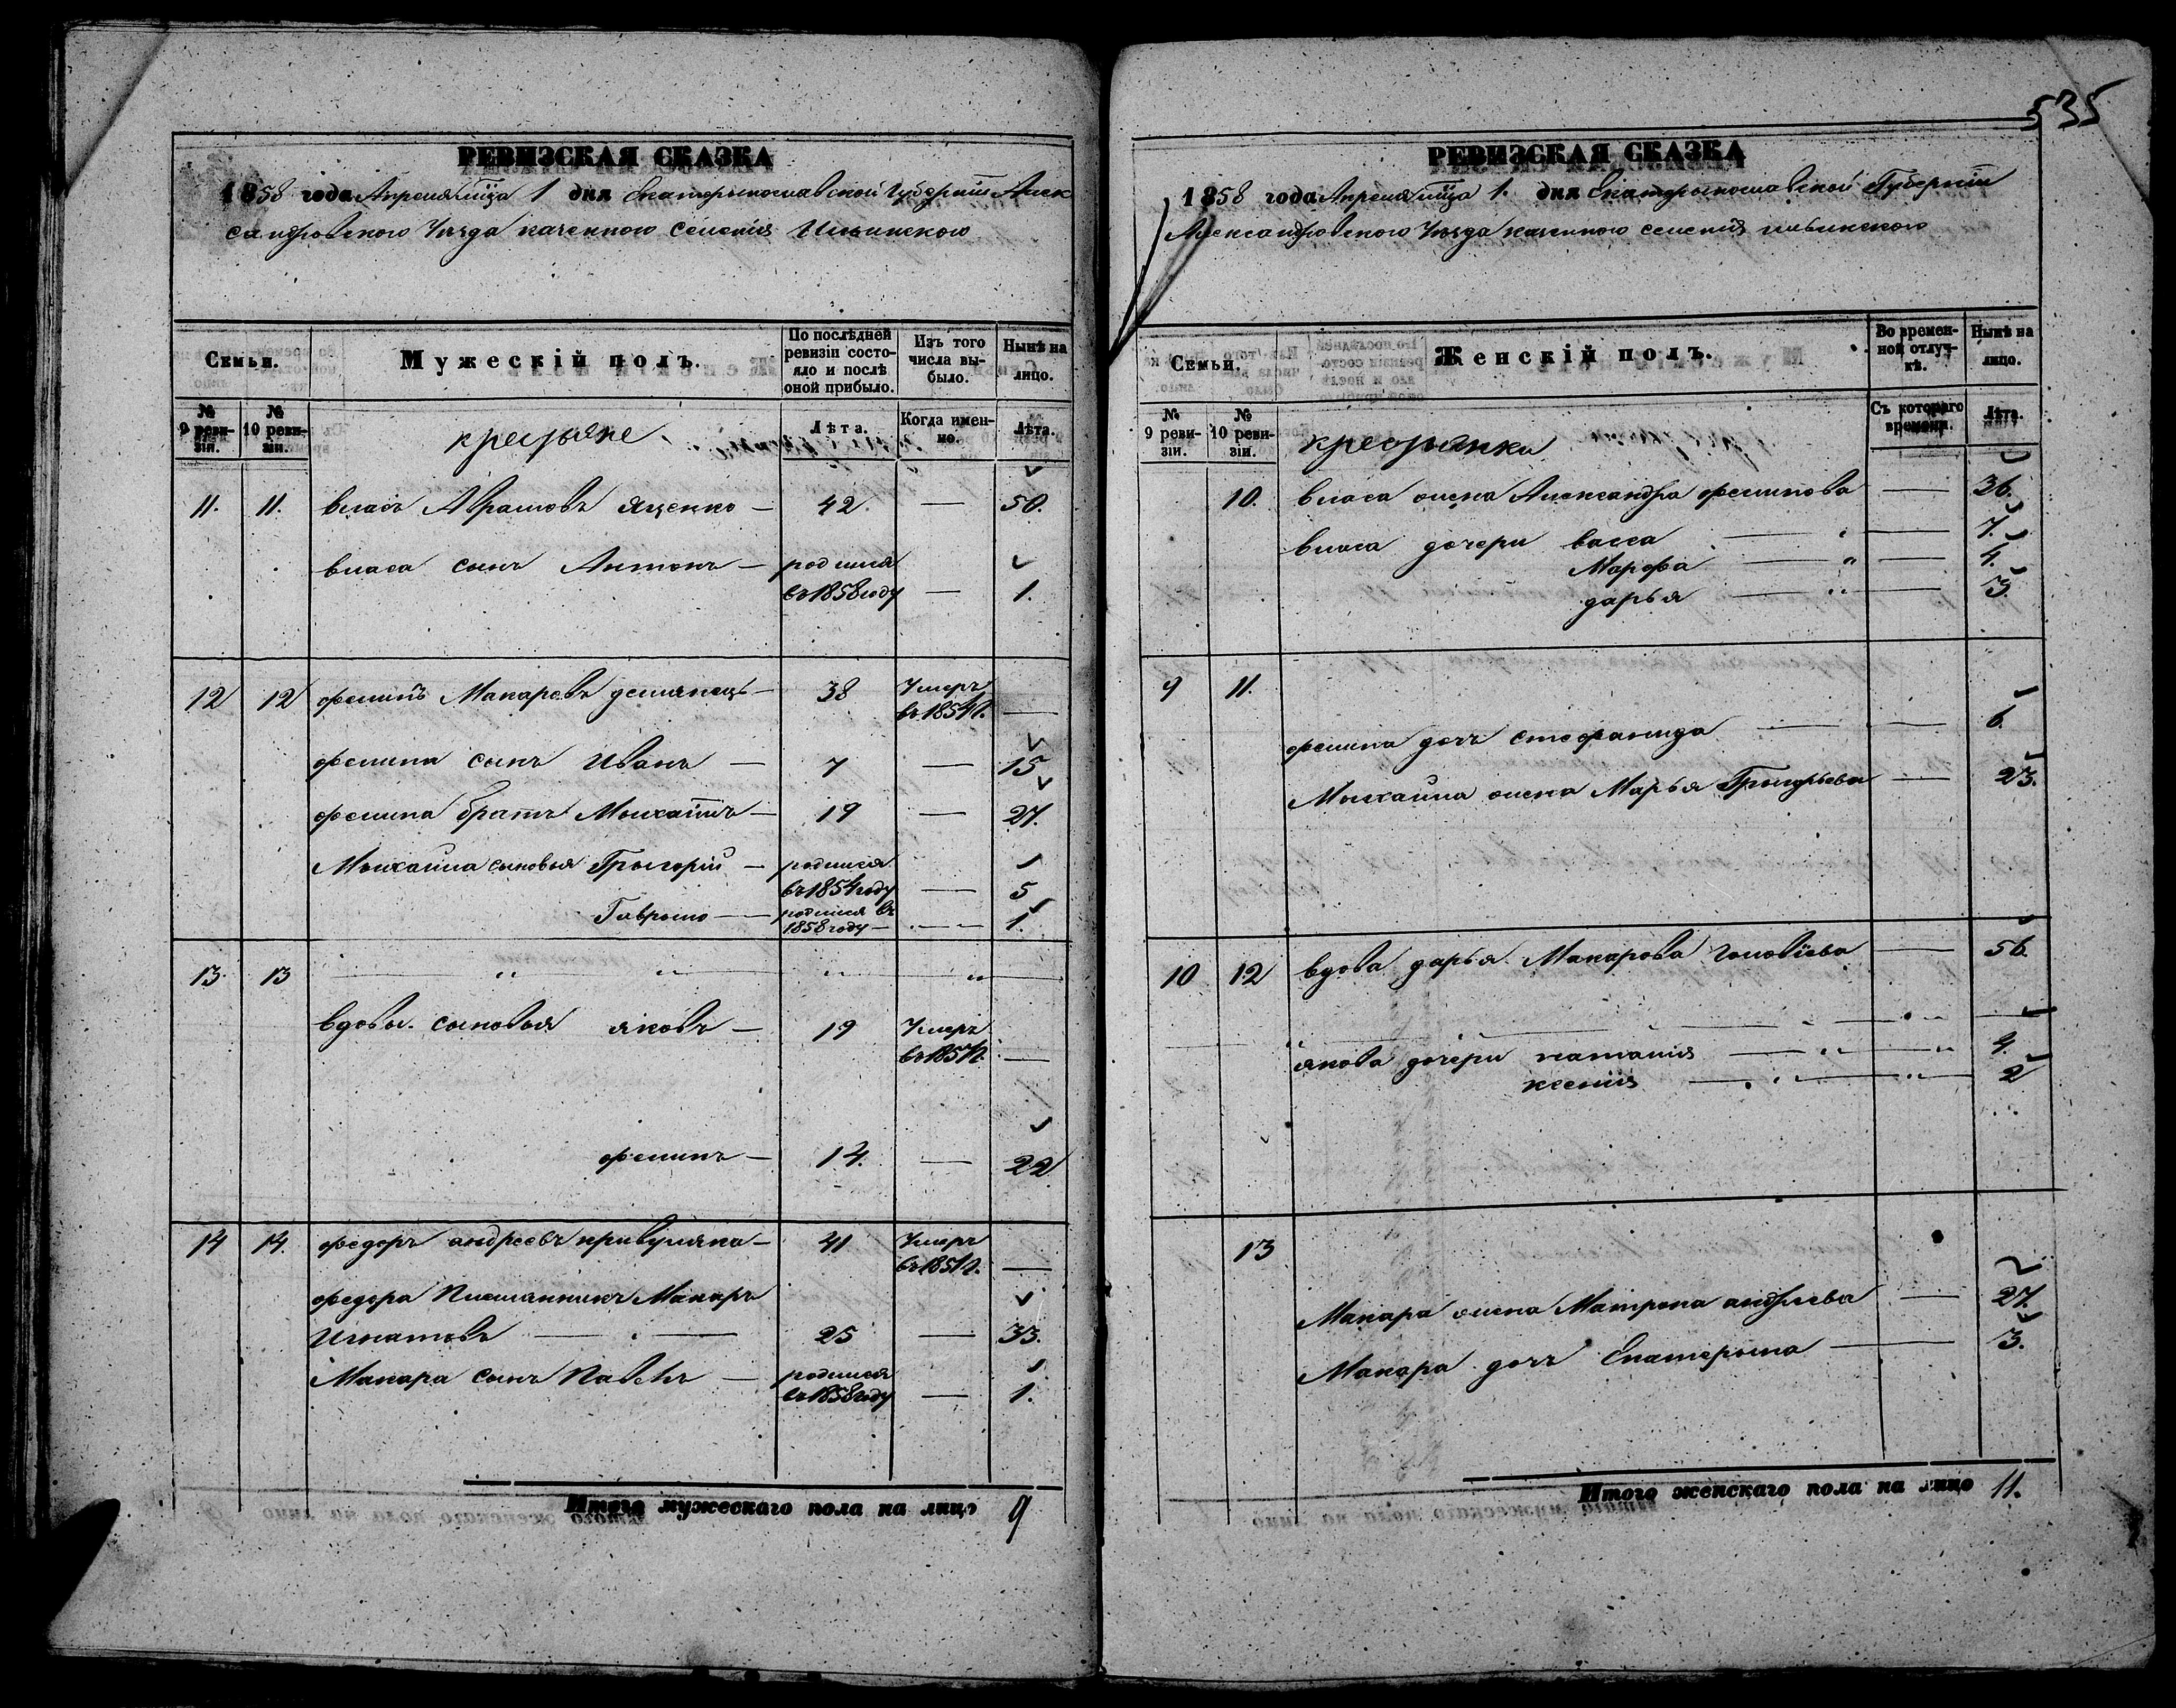 РЕВИЗСКАЯ СКАЗКА
1858 года Апреля м̃ца 1 дня Екатерынославской Губернии Алек
сандровского Уезда казенного селения Ильинского
Семьи.
Мужескій полъ.
По послѣдней ревизіи состояло и послѣ оной прибыло.
Изъ того числа выбыло.
Нынѣ на лицо.
№ 9 ревизіи.
№ 10 ревизіи.
крестьяне
Лѣта.
Когда именно.
Лѣта.
11. 11. власъ Аврамовъ яценко — 42. — 50.
власа сынъ Антонъ — родился
въ 1858 году — 1.
12 12 филипъ Макаровъ демянецъ — 38 Умеръ
въ 1854 г. —
филипа сынъ Иванъ — 7 — 15
филипа братъ Михаилъ — 19 — 27.
Михаила сыновья Григорій — родился
въ 1854 году — 5
Гаврыло — родился въ
1858 году — 1.
13 13 — " " " " —
вдовы сыновья яковъ — 19 Умеръ
—
филипъ — 14. — 22
14 14. федоръ андреевъ кривуляка — 41 Умеръ
—
федора Племянникъ Макаръ
Игнатовъ — 25 — 33.
Макара сынъ Павелъ — родился
въ 1858 году — 1.
Итого мужескаго пола на лицо 9
535
РЕВИЗСКАЯ СКАЗКА
1858 года Апреля м̃ца 1. дня Екатерынославской Губернии
Александровского Уезда казенного селения ильинского
Семьи.
Женскій полъ.
Во временной отлучкѣ.
Нынѣ на лицо.
№ 9 ревизіи.
№ 10 ревизіи.
крестьянки
Съ котораго времени.
Лѣта.
10. власа жена Александра филипова — 36.
власа дочери васса — " — 7.
Марфа — " — 4.
дарья — " — 3.
9 11.
филипа дочь стефанида — 6.
Михаила жена Марья Григорьева — 23.
10 12 вдова дарья Макарова — 56.
якова дочери наталия — " — " 4.
ксения — " — " 2
13
Макара жена Матрона андреева — 27.
Макара дочь Екатерына — 3.
Итого женскаго пола на лицо 11.